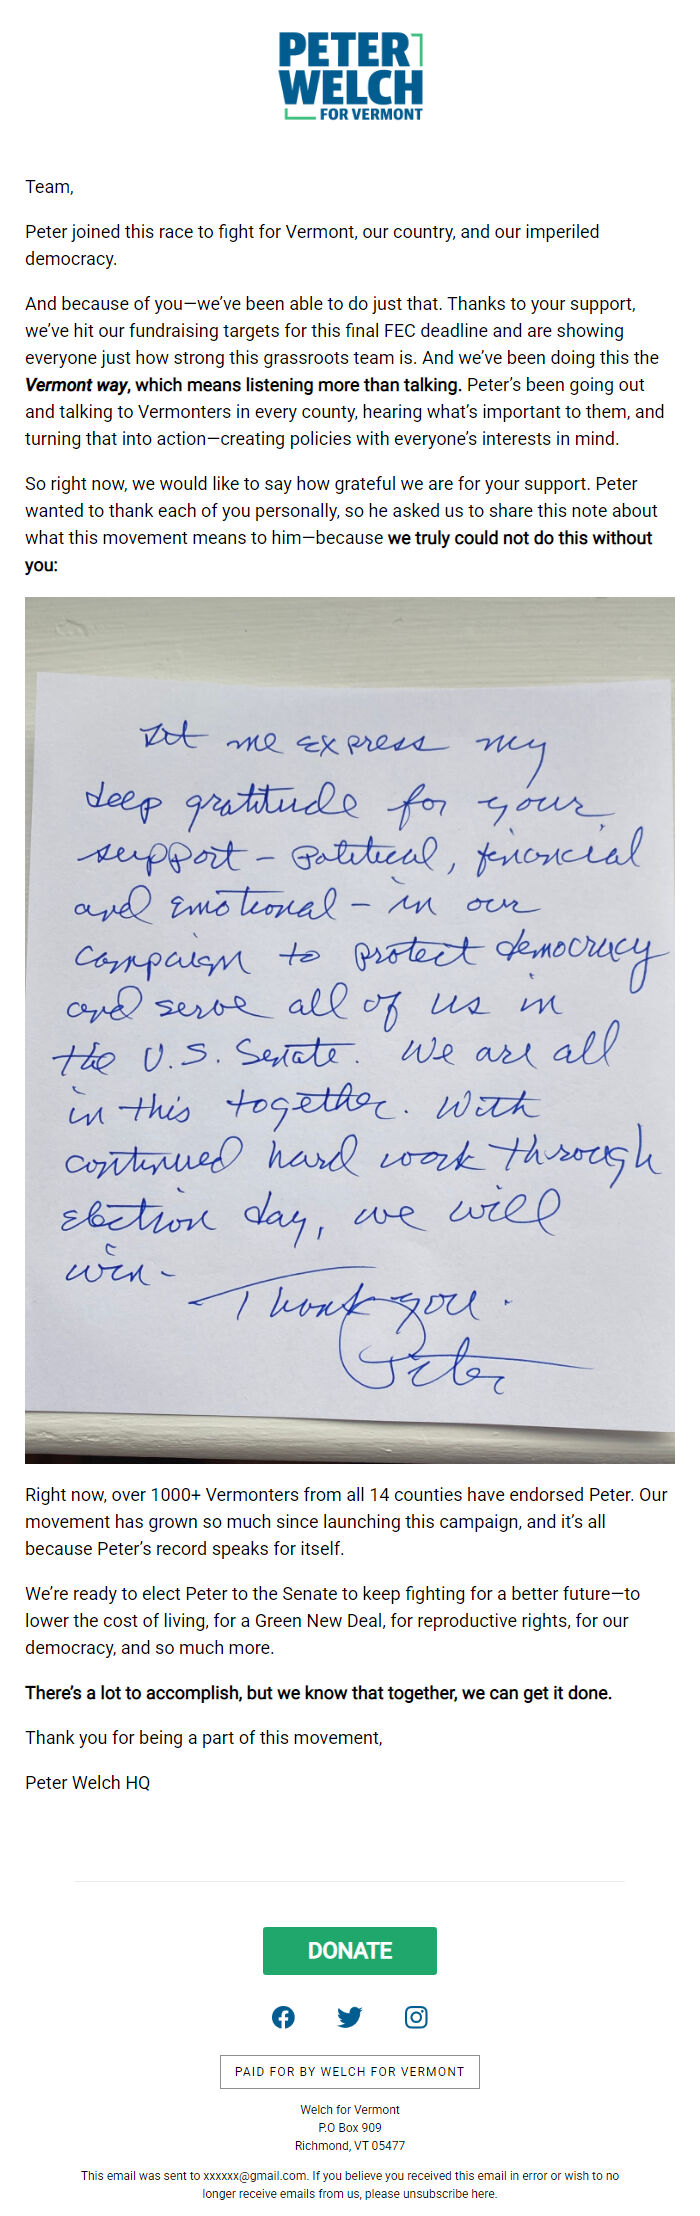 PETER
WELCH
FOR VERMONT
Team,
Peter joined this race to fight for Vermont, our country, and our imperiled
democracy.
And because of you—we’ve been able to do just that. Thanks to your support,
we’ve hit our fundraising targets for this final FEC deadline and are showing
everyone just how strong this grassroots team is. And we’ve been doing this the
Vermont way, which means listening more than talking. Peter’s been going out
and talking to Vermonters in every county, hearing what’s important to them, and
turning that into action—creating policies with everyone’s interests in mind.
So right now, we would like to say how grateful we are for your support. Peter
wanted to thank each of you personally, so he asked us to share this note about
what this movement means to him—because we truly could not do this without
you:
Let me express my
deep gratitude for your
support - political, financial
and emotional - in our
campaign to protect democracy
and serve all of us in
the U.S. Senate. We are all
in this together. With
continued hard work through
election day, we will
win -
Thank you.
Peter
Right now, over 1000+ Vermonters from all 14 counties have endorsed Peter. Our
movement has grown so much since launching this campaign, and it’s all
because Peter’s record speaks for itself.
We’re ready to elect Peter to the Senate to keep fighting for a better future—to
lower the cost of living, for a Green New Deal, for reproductive rights, for our
democracy, and so much more.
There’s a lot to accomplish, but we know that together, we can get it done.
Thank you for being a part of this movement,
Peter Welch HQ
DONATE
PAID FOR BY WELCH FOR VERMONT
Welch for Vermont
P.O Box 909
Richmond, VT 05477
This email was sent to xxxxxx@gmail.com. If you believe you received this email in error or wish to no
longer receive emails from us, please unsubscribe here.